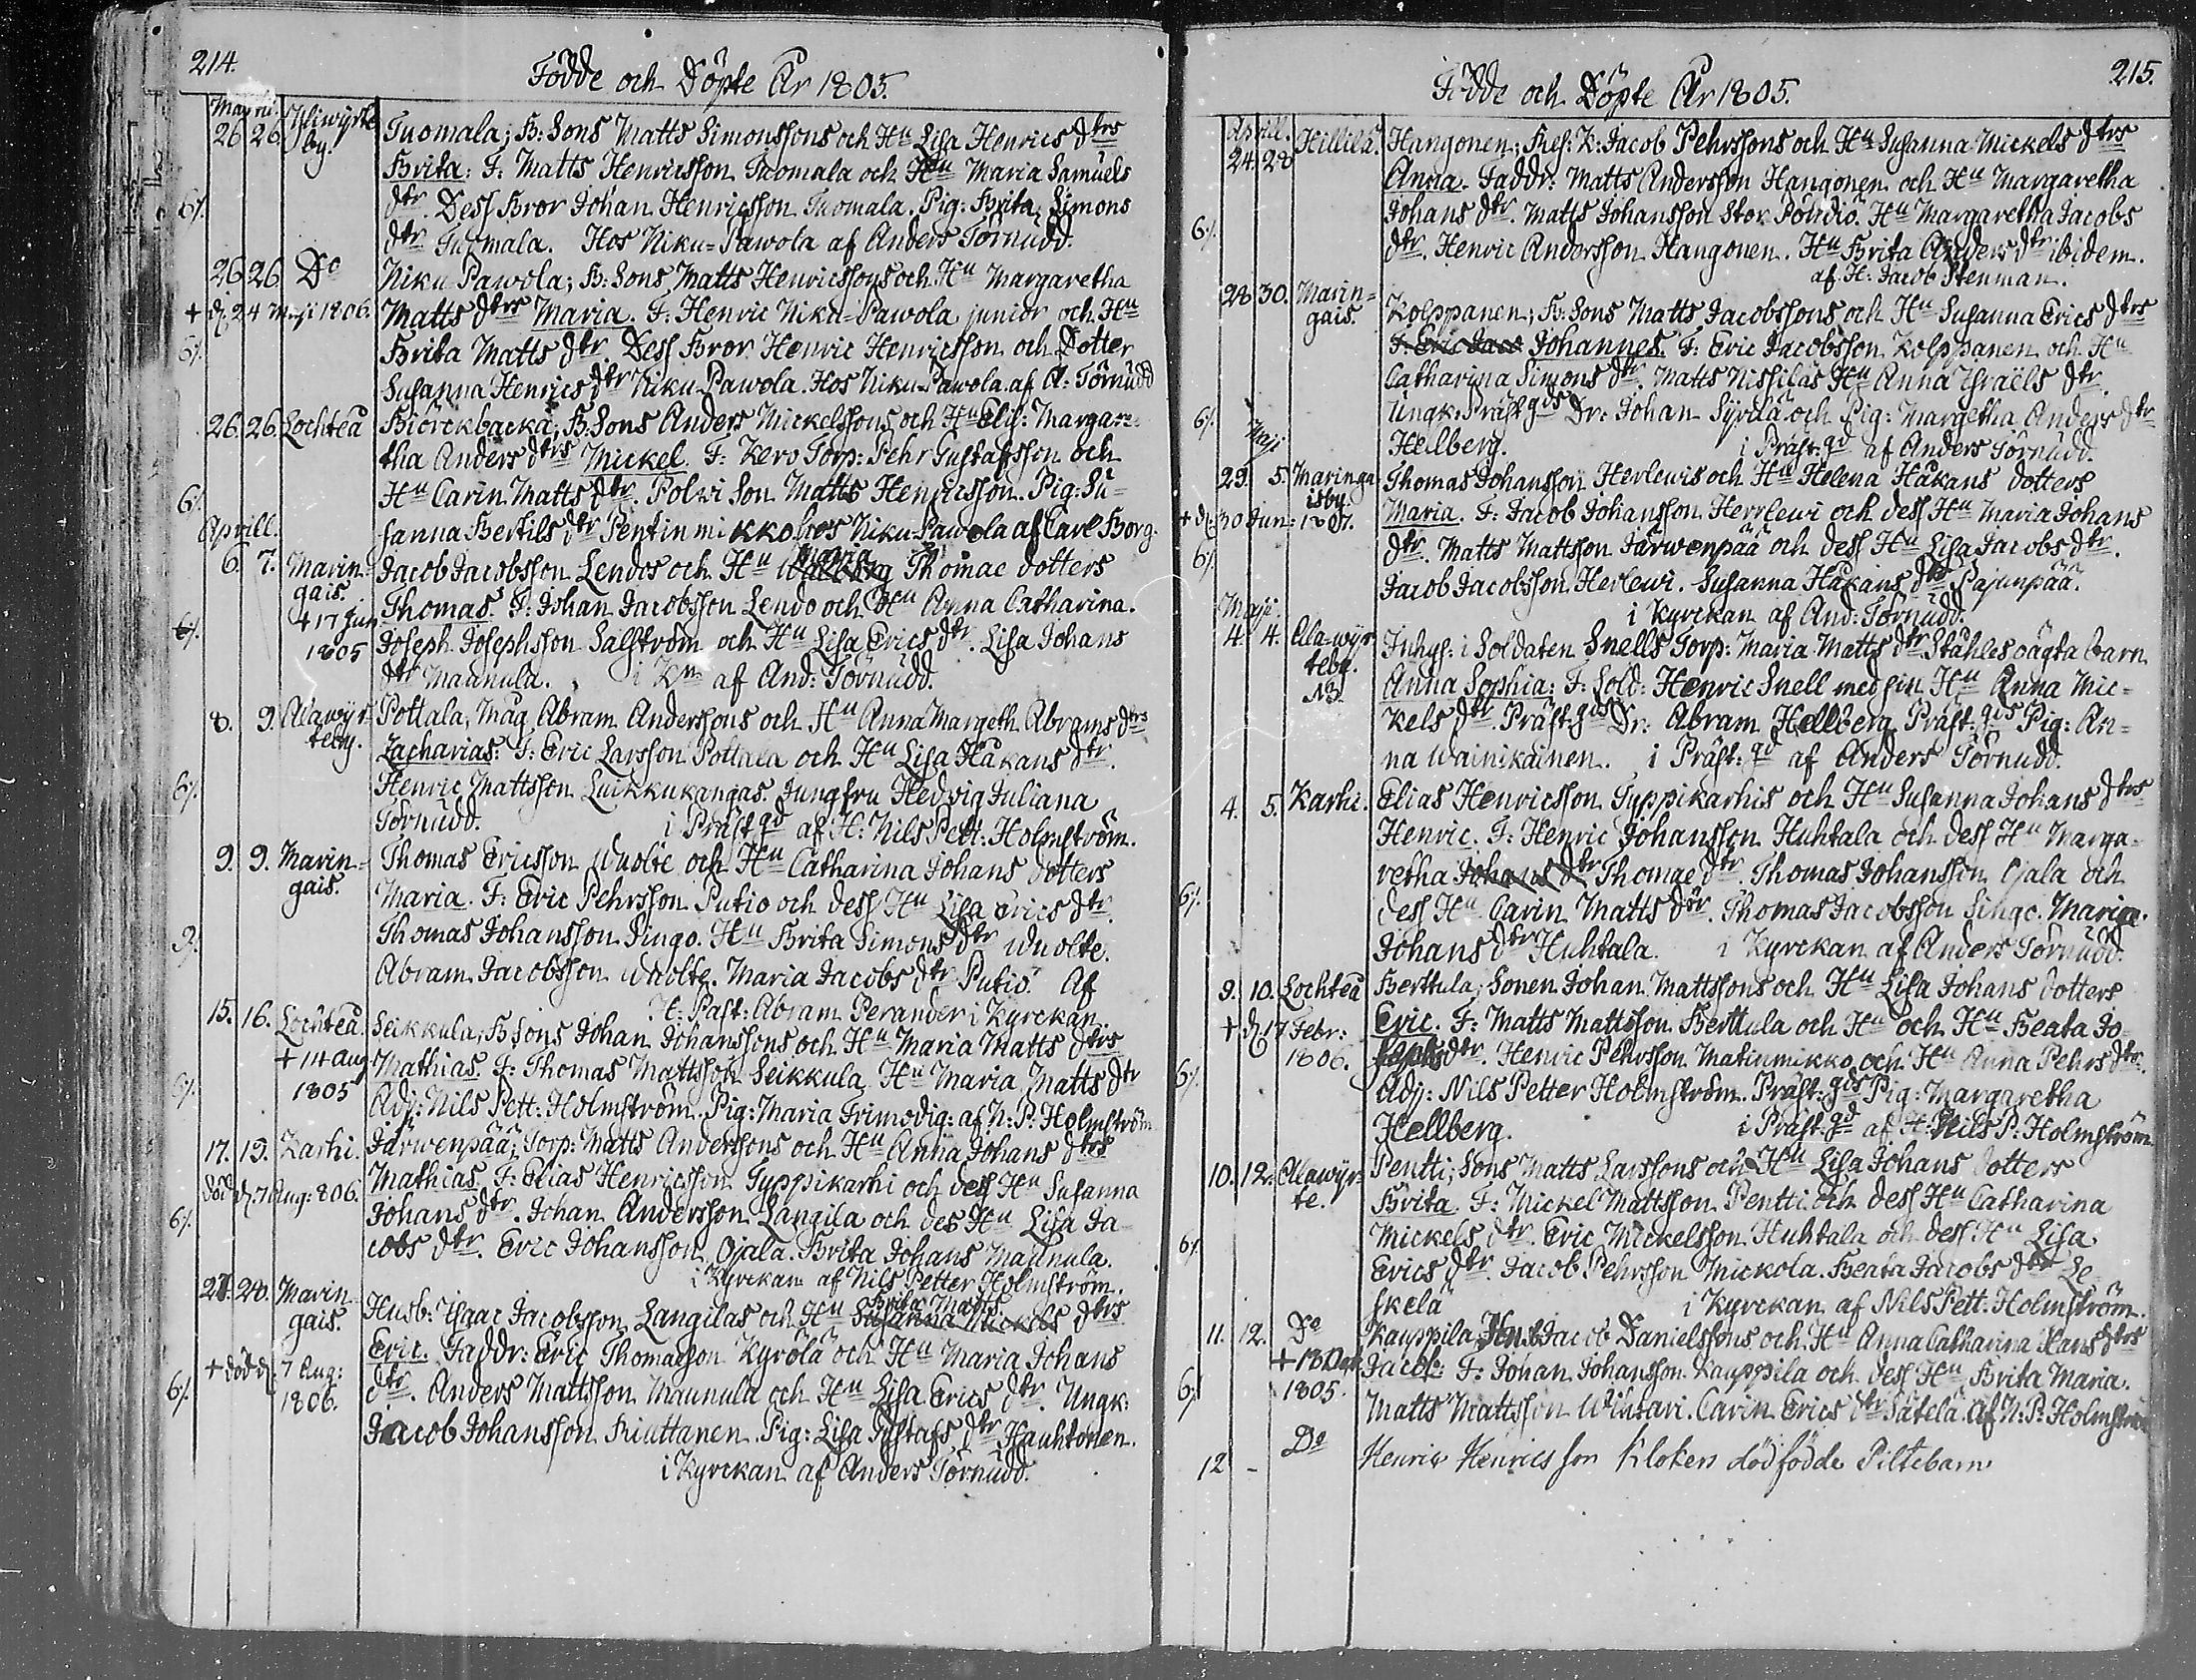 214.
Födde och Döpte År 1805.
Martii.
26 26 Yliwyrte by. Tuomala; B: Sons Matts Simonssons och Hu Lisa Henrics dtrs
Brita: F. Matts Henricsson Tuomala och Hu Maria Samuels
6/. dtr. Dess Bror Johan Henricsson Tuomala. Pig: Brita Simons
dtr Tuomala. Hos Niku=Pawola af Anders Törnudd.
26 26 Do Niku Pawola; B: Sons Matts Henricssons och Hu Margaretha
+ d. 24 Maji 1806. Matts dtrs Maria. F: Henric Niku=Pawola junior och Hu
6/. Brita Matts dtr. Dess Bror Henric Henricsson och Dotter
Susanna Henrics dtr Niku-Pawola. Hos Niku=Pawola af A: Törnudd
26. 26. Lochteå Biörckbacka; B: Sons Anders Mickelssons och Hu Elis: Margare-
tha Anders dtrs Mickel. F: Kero Torp: Pehr Gustafsson och
6/. Hu Carin Matts dtr. Polwi Son Matts Henricsson. Pig: Su=
Aprill. sanna Bertils dtr Pentin mikko hos Niku-Pawola af Carl Borg.
6. 7. Marin gais. Jacob Jacobsson Lendos och Hu Maria Thomae dotters
+ 17 Jun 1805 Thomas. F: Johan Jacobsson Lendo och Hu Anna Catharina.
6/. Joseph Josephsson Salström och Hu Lisa Erics dtr. Lisa Johans
dtr Maunula. i Kn af And: Törnudd.
8. 9. Alawyr teby. Pottala, Måg Abram Anderssons och Hu Anna Margeth. Abrams dtrs
Zacharias: F: Eric Larsson Pottala och Hu Lisa Håkans dtr.
6/. Henric Mattsson Luikkukangas. Jungfru Hedvig Juliana
Törnudd. i Präst.gd af H: Nils Pett: Holmström.
9. 9. Marin= gais. Thomas Ericsson Wuolte och Hu Catharina Johans dotters
Maria. F: Eric Pehrsson Putio och dess Hu Lisa Erics dtr.
9/. Thomas Johansson Singo. Hu Brita Simons dtr Wuolte.
Abram Jacobsson Wuolte. Maria Jacobs dtr Putio. Af
H: Past: Abram Perander i Kyrckan
15. 16. Lochteå. Seikkula; B: Sons Johan Johanssons och Hu Maria Matts dtrs
+ 14 Aug 1805 Mathias. F: Thomas Mattsson Seikkula Hu Maria Matts dtr
6/. Adj: Nils Pett: Holmström. Pig: Maria Frimodig: af N: P: Holmström
17. 19. Karhi. Järwenpää; Torp: Matts Anderssons och Hu Anna Johans dtrs
död d. 7 Aug: 806. Mathias F: Elias Henricsson Typpikarhi och dess Hu Susanna
6/. Johans dtr. Johan Andersson Långila och des Hu Lisa Ja-
cobs dtr. Eric Johansson Ojala. Brita Johans Maunula.
i Kyrckan af Nils Petter Holmström.
27. 28. Marin gais. Husb: Isaac Jacobsson Langilas och Hu Brita Matts dtrs
Eric. Faddr: Eric Thomasson Kyrölä och Hu Maria Johans
6/. + död d. 7 Aug: 1806. dtr. Anders Mattsson Maunula och Hu Lisa Erics dtr. Ungk:
Jacob Johansson Friuttanen. Pig: Lisa Gustafs dtr Hauhtonen.
i Kyrckan af Anders Törnudd.
215.
Födde och Döpte År 1805.
Aprill.
24. 28 Hillilä. Hangonen; Hes: K: Jacob Pehrssons och Hu Susanna Mickels dtrs
Anna. Faddr: Matts Andersson Hangonen och Hu Margaretha
6/. Johans dtr. Matts Johansson Stor Pöndiö. Hu Margaretha Jacobs
dtr. Henric Andersson Hangonen. Hu Brita Anders dtr ibidem.
af H: Jacob Stenman.
28 30. Marin= gais. Kolppanen; B: Sons Matts Jacobssons och Hu Susanna Erics dtrs
F: Eric Jaco Johannes. F: Eric Jacobsson Kolppanen och Hu
Catharina Simons dtr. Matts Nissilas Hu Anna Israëls dtr.
6/. Ungk: Präst.gds Dr: Johan Syrilä och Pig: Margetha Anders dtr
Maji Hellberg. i Präst.gd af Anders Törnudd.
29. 5. Maringa isby Thomas Johansson Herlewis och Hu Helena Håkans dotters
+ d. 30 Jun: 1807. Maria. F: Jacob Johansson Herrlewi och dess Hu Maria Johans
6/. dtr. Matts Mattsson Järwenpää och dess Hu Lisa Jacobs dtr.
Jacob Jacobsson Herlewi. Susanna Håkans dtr Pajunpää.
Maji. i Kyrckan af And: Törnudd.
4. 4. Alawyr teby. Inhys: i Soldaten Snells Torp: Maria Matts dtr Ståhles oägta barn
NB. Anna Sophia: F: Sold: Henric Snell med sin Hu Anna Mic=
kels dtr. Präst.gds Dr: Abram Hellberg. Präst.gds Pig: An=
na Wainikainen. i Präst:gd af Anders Törnudd.
4. 5. Karhi. Elias Henricsson Typpikarhis och Hu Susanna Johans dtrs
Henric. F: Henric Johansson Huhtala och dess Hu Marga=
6/. retha Johans dtr Thomae dtr. Thomas Johansson Ojala och
dess Hu Carin Matts dtr. Thomas Jacobsson Singo. Maria
Johans dtr Huhtala. i Kyrckan af Anders Törnudd.
9. 10. Lochteå Berttula; Sonen Johan Mattssons och Hu Lisa Johans dotters
+ d. 17 Febr: 1806. Eric. F: Matts Mattsson Berttula och Hu och Hu Beata Jo-
6/. sephs dtr. Henric Pehrsson Matinmikko och Hu Anna Pehrs dtr.
Adj: Nils Petter Holmström. Präst.gds Pig: Margaretha
Hellberg. i Präst:gd af H: Nils P: Holmström
10. 12. Alawyr= te. Pentti; Sons Matts Larssons och Hu Lisa Johans dotters
Brita. F: Mickel Mattsson Pentti och dess Hu Catharina
6/. Mickels dtr. Eric Mickelsson Huhtala och dess Hu Lisa
Erics dtr. Jacob Pehrsson Mickola. Beata Jacobs dtr Le-
skelä i Kyrckan af Nils Pett: Holmström.
11. 12. Do Kauppila; Jacob Danielssons och Hu Anna Catharina Hans dtrs
6/ 1805. Jacob: F: Johan Johansson Kauppila och dess Hu Brita Maria.
Matts Mattsson Wintari. Carin Erics dtr Sätelä. af N: P: Holmström
12 - Do Henric Henricsson Klokers dödfödde Piltebarn